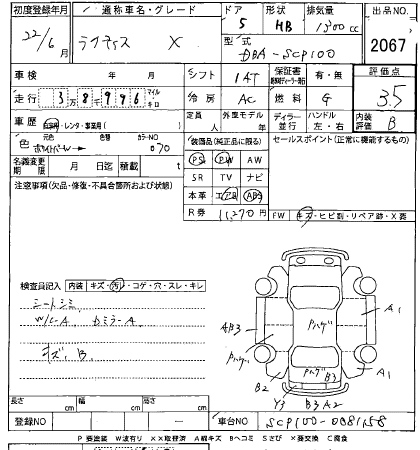 初度登録年月 通称車名・グレード ドア 形状 排気量 出品NO.
22/6月 ラクティス X 5 HB 1300cc
型式 2067
DBA-SCP100
車検 年 月 シフト IAT 保証書 有・無 評価点
走行 3万8千996 マイル キロ 冷房 AC 燃料 G 3.5
車歴 自家用・レンタ・事業用( ) 定員 人 外装モデル ディーラー 並行 ハンドル 左・右 内装評価 B
色 元色 色替 カラーNO
ホワイトパール 070
装備品(純正品に限る) セールスポイント(正常に機能するもの)
名義変更期限 月 日迄 積載 t
PS PW AW
注意事項(欠品・修復・不具合箇所および状態)
SR TV ナビ
本革 エアB ABS
R券 11,270円 FW キズ・ヒビ割・リペア跡・X要
検査員記入 内装 キズ・汚レ・コゲ・穴・スレ・キレ
シートシミ
W/C-A. Dミラ-A
キズ、B
Pハゲ A1
AB3 Pハゲ
Pハゲ A1
B2 Pハゲ B3
Y3 B3A2
長さ cm 幅 cm 高さ cm
登録NO — 車台NO SCP100-0081158
P要塗装 W波有り XX取替済 A線キズ Bヘコミ Sさび X要交換 C腐食